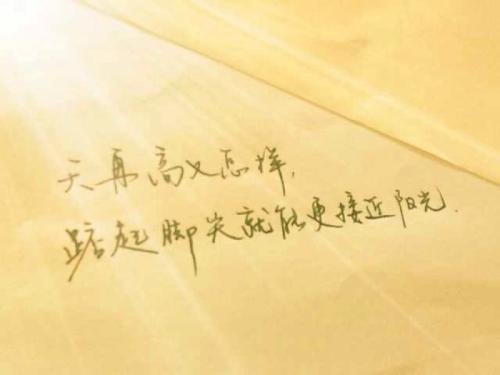 天再高又怎样,
踮起脚尖就能更接近阳光.